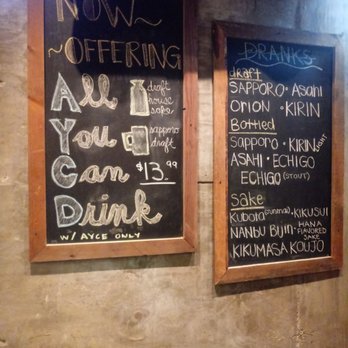 NOW
~OFFERING~
All draft house sake
You sapporo draft
Can $13.99
Drink
W/ AYCE ONLY
DRANKS
draft
SAPPORO • ASAHI
ORION • KIRIN
Bottled
Sapporo • KIRIN LIGHT
ASAHI • ECHIGO
ECHIGO (STOUT)
Sake
KUBOTA • KIKUSUI
NANBU BIJIN • HANA FLAVORED SAKE
KIKUMASA KOUJO